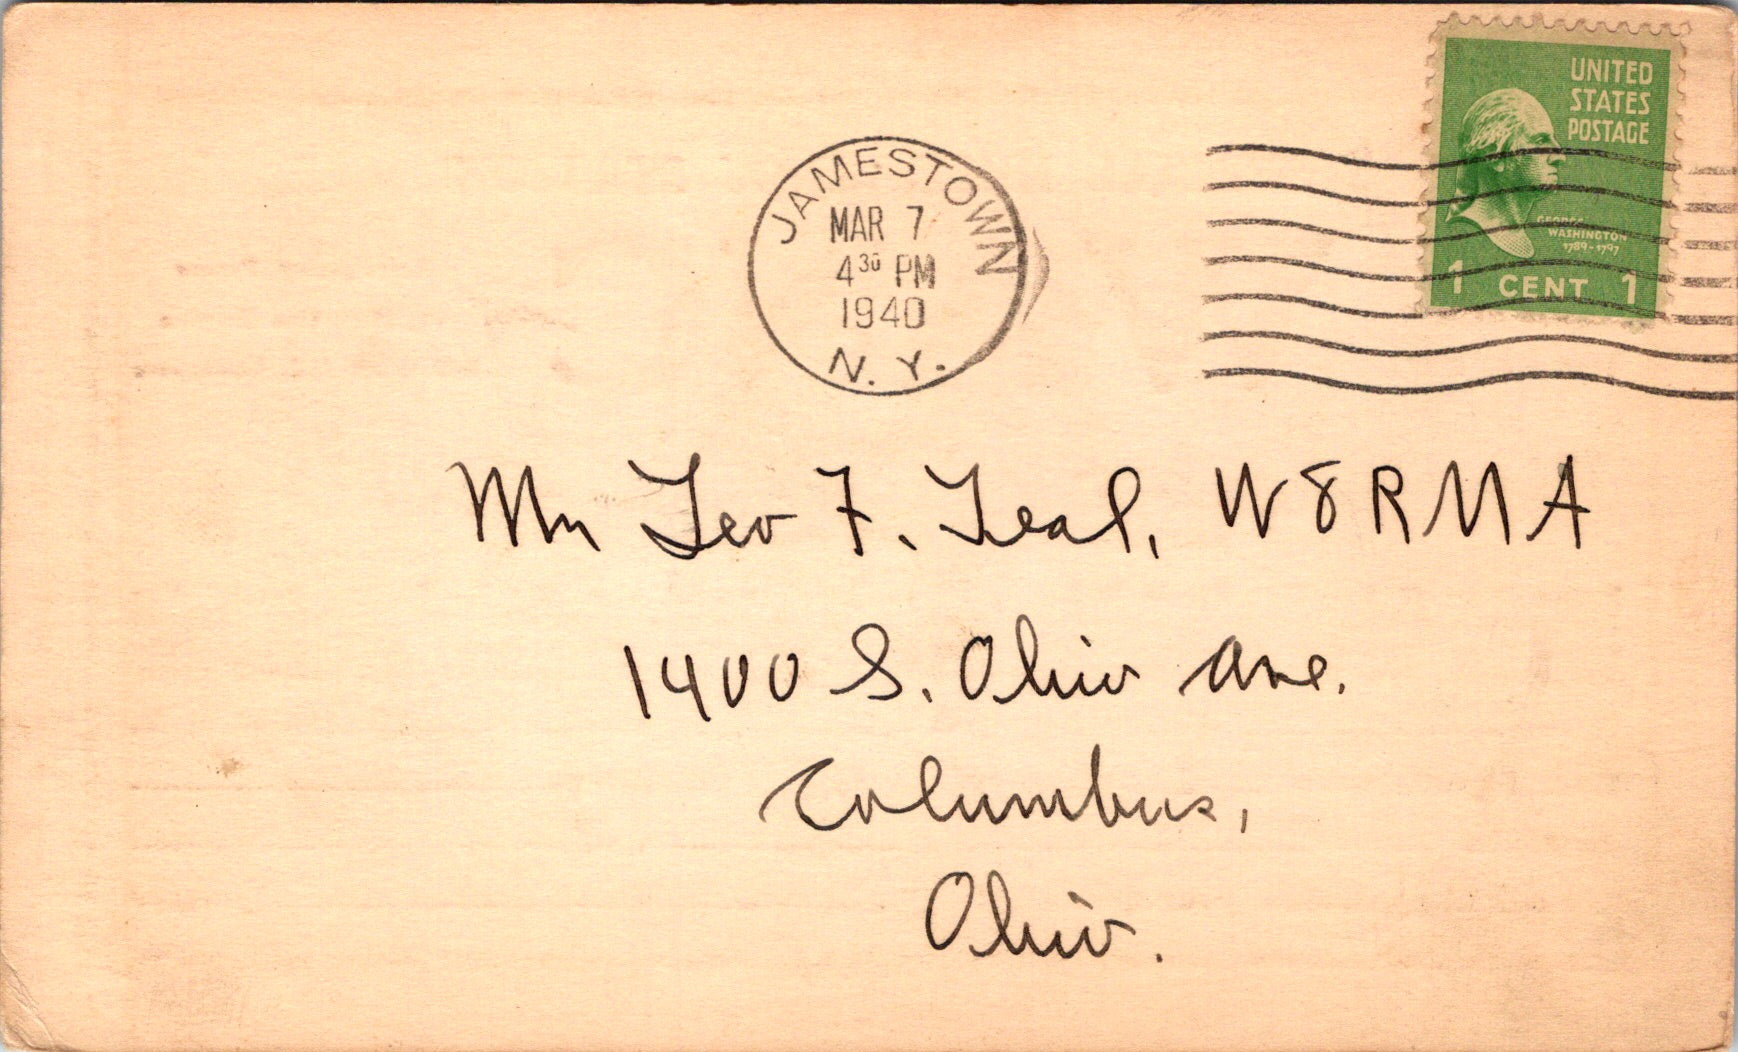 UNITED
STATES
POSTAGE
GEORGE
WASHINGTON
1789-1797
1 CENT 1
JAMESTOWN
MAR 7
4 30 PM
1940
N. Y.
Mr Leo F. Teal, W8RMA
1400 S. Ohio Ave.
Columbus,
Ohio.